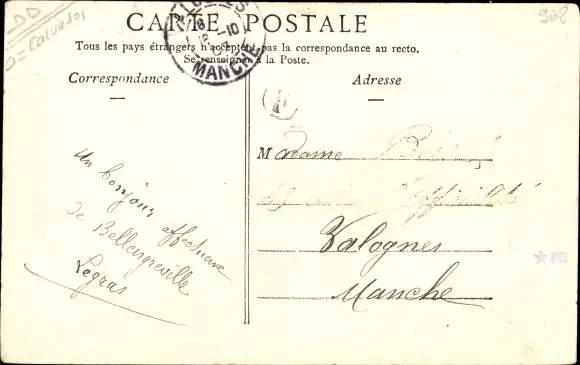 DD
O = Calvados
968
CARTE POSTALE
Tous les pays étrangers n'acceptent pas la correspondance au recto.
Se renseigner à la Poste.
Correspondance
Adresse
MANCHE
Un bonjour affectueux
de Bellengreville
Legras
Madame
Valognes
Manche
PB